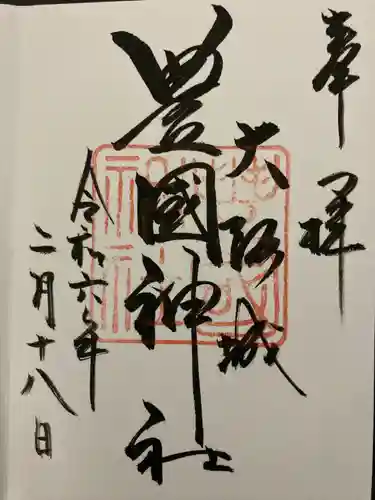 奉拝
大阪城
豊國神社
令和六年
二月十八日